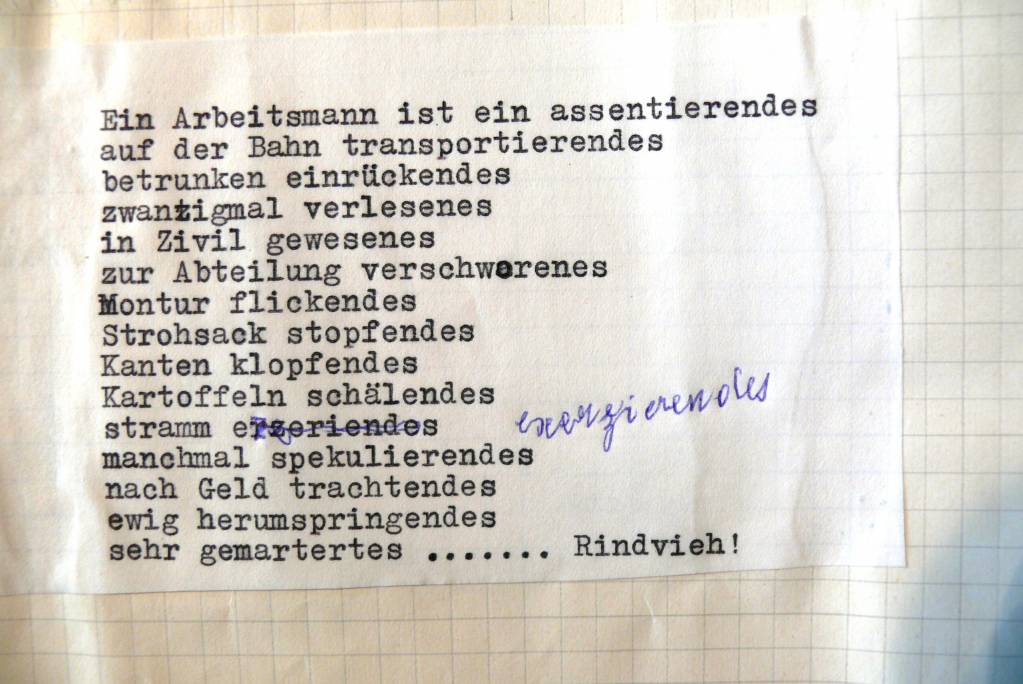 Ein Arbeitsmann ist ein assentierendes
auf der Bahn transportierendes
betrunken einrückendes
zwanzigmal verlesenes
in Zivil gewesenes
zur Abteilung verschworenes
Montur flickendes
Strohsack stopfendes
Kanten klopfendes
Kartoffeln schälendes
stramm erzeriendes exerzierendes
manchmal spekulierendes
nach Geld trachtendes
ewig herumspringendes
sehr gemartertes ....... Rindvieh!